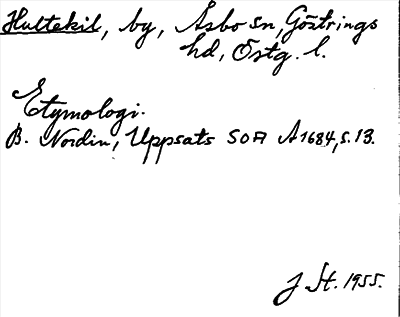 Hultekil, by, Åsbo sn, Göstrings
hd, Östg. l.
Etymologi.
B. Nordin, Uppsats SOA A1684, s. 13.
J St. 1955.